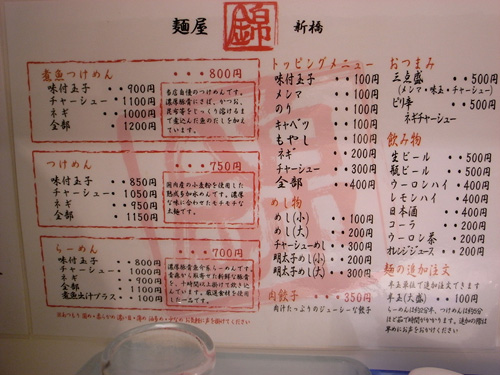 麺屋 錦 新橋
煮魚つけめん ・・・800円
味付玉子 ・・900円
チャーシュー・1100円
ネギ ・・1000円
全部 ・・1200円
当店自慢のつけめんです。
濃厚豚骨にさば、かつお、
昆布等をとろけるまで
煮込んだ魚のだしを加え
ています。
つけめん ・・・750円
味付玉子 ・・850円
チャーシュー・1050円
ネギ ・・950円
全部 ・・1150円
国内産の小麦粉を使用した
熟成を加めんです。濃厚
な味に合わせたモチモチな
太麺です。
らーめん ・・・700円
味付玉子 ・・・800円
チャーシュー・・1000円
ネギ ・・・900円
全部 ・・・1100円
煮魚出汁プラス・・100円
トッピングメニュー
味付玉子 ・・100円
メンマ ・・100円
のり ・・100円
キャベツ ・・100円
もやし ・・100円
ネギ ・・200円
チャーシュー ・・300円
全部 ・・400円
めし物
めし(小) ・・100円
めし(大) ・・200円
チャーシューめし・・300円
明太子めし(小)・・200円
明太子めし(大)・・300円
肉餃子 ・・・350円
肉汁たっぷりのジューシーな餃子
おつまみ
三点盛 ・・500円
(メンマ・味玉・チャーシュー)
ピリ辛 ・・500円
ネギチャーシュー
飲み物
生ビール ・・500円
瓶ビール ・・500円
ウーロンハイ ・・400円
レモンハイ ・・400円
日本酒 ・・400円
コーラ ・・200円
ウーロン茶 ・・200円
オレンジジュース・・200円
麺の追加注文
半玉単位で追加注文できます
半玉(大盛) ・・100円